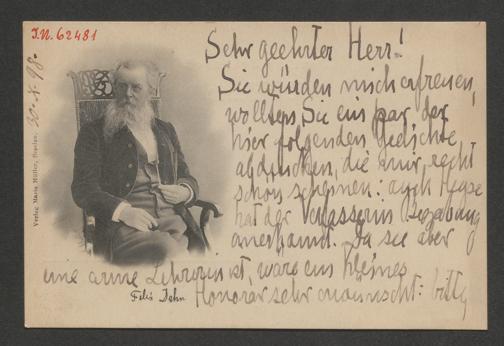 I.N. 62481
30.X.98.
Verlag Maria Müller, Breslau.
Sehr geehrter Herr!
Sie würden mich erfreuen,
wollten Sie ein par der
hier folgenden Gedichte
abdrucken, die mir recht
schön scheinen: auch Heyse
hat der Verfasserin Begabung
anerkannt. Da sie aber
eine arme Lehrerin ist, wäre ein kleines
Honorar sehr erwünscht: bitte
Felix Dahn